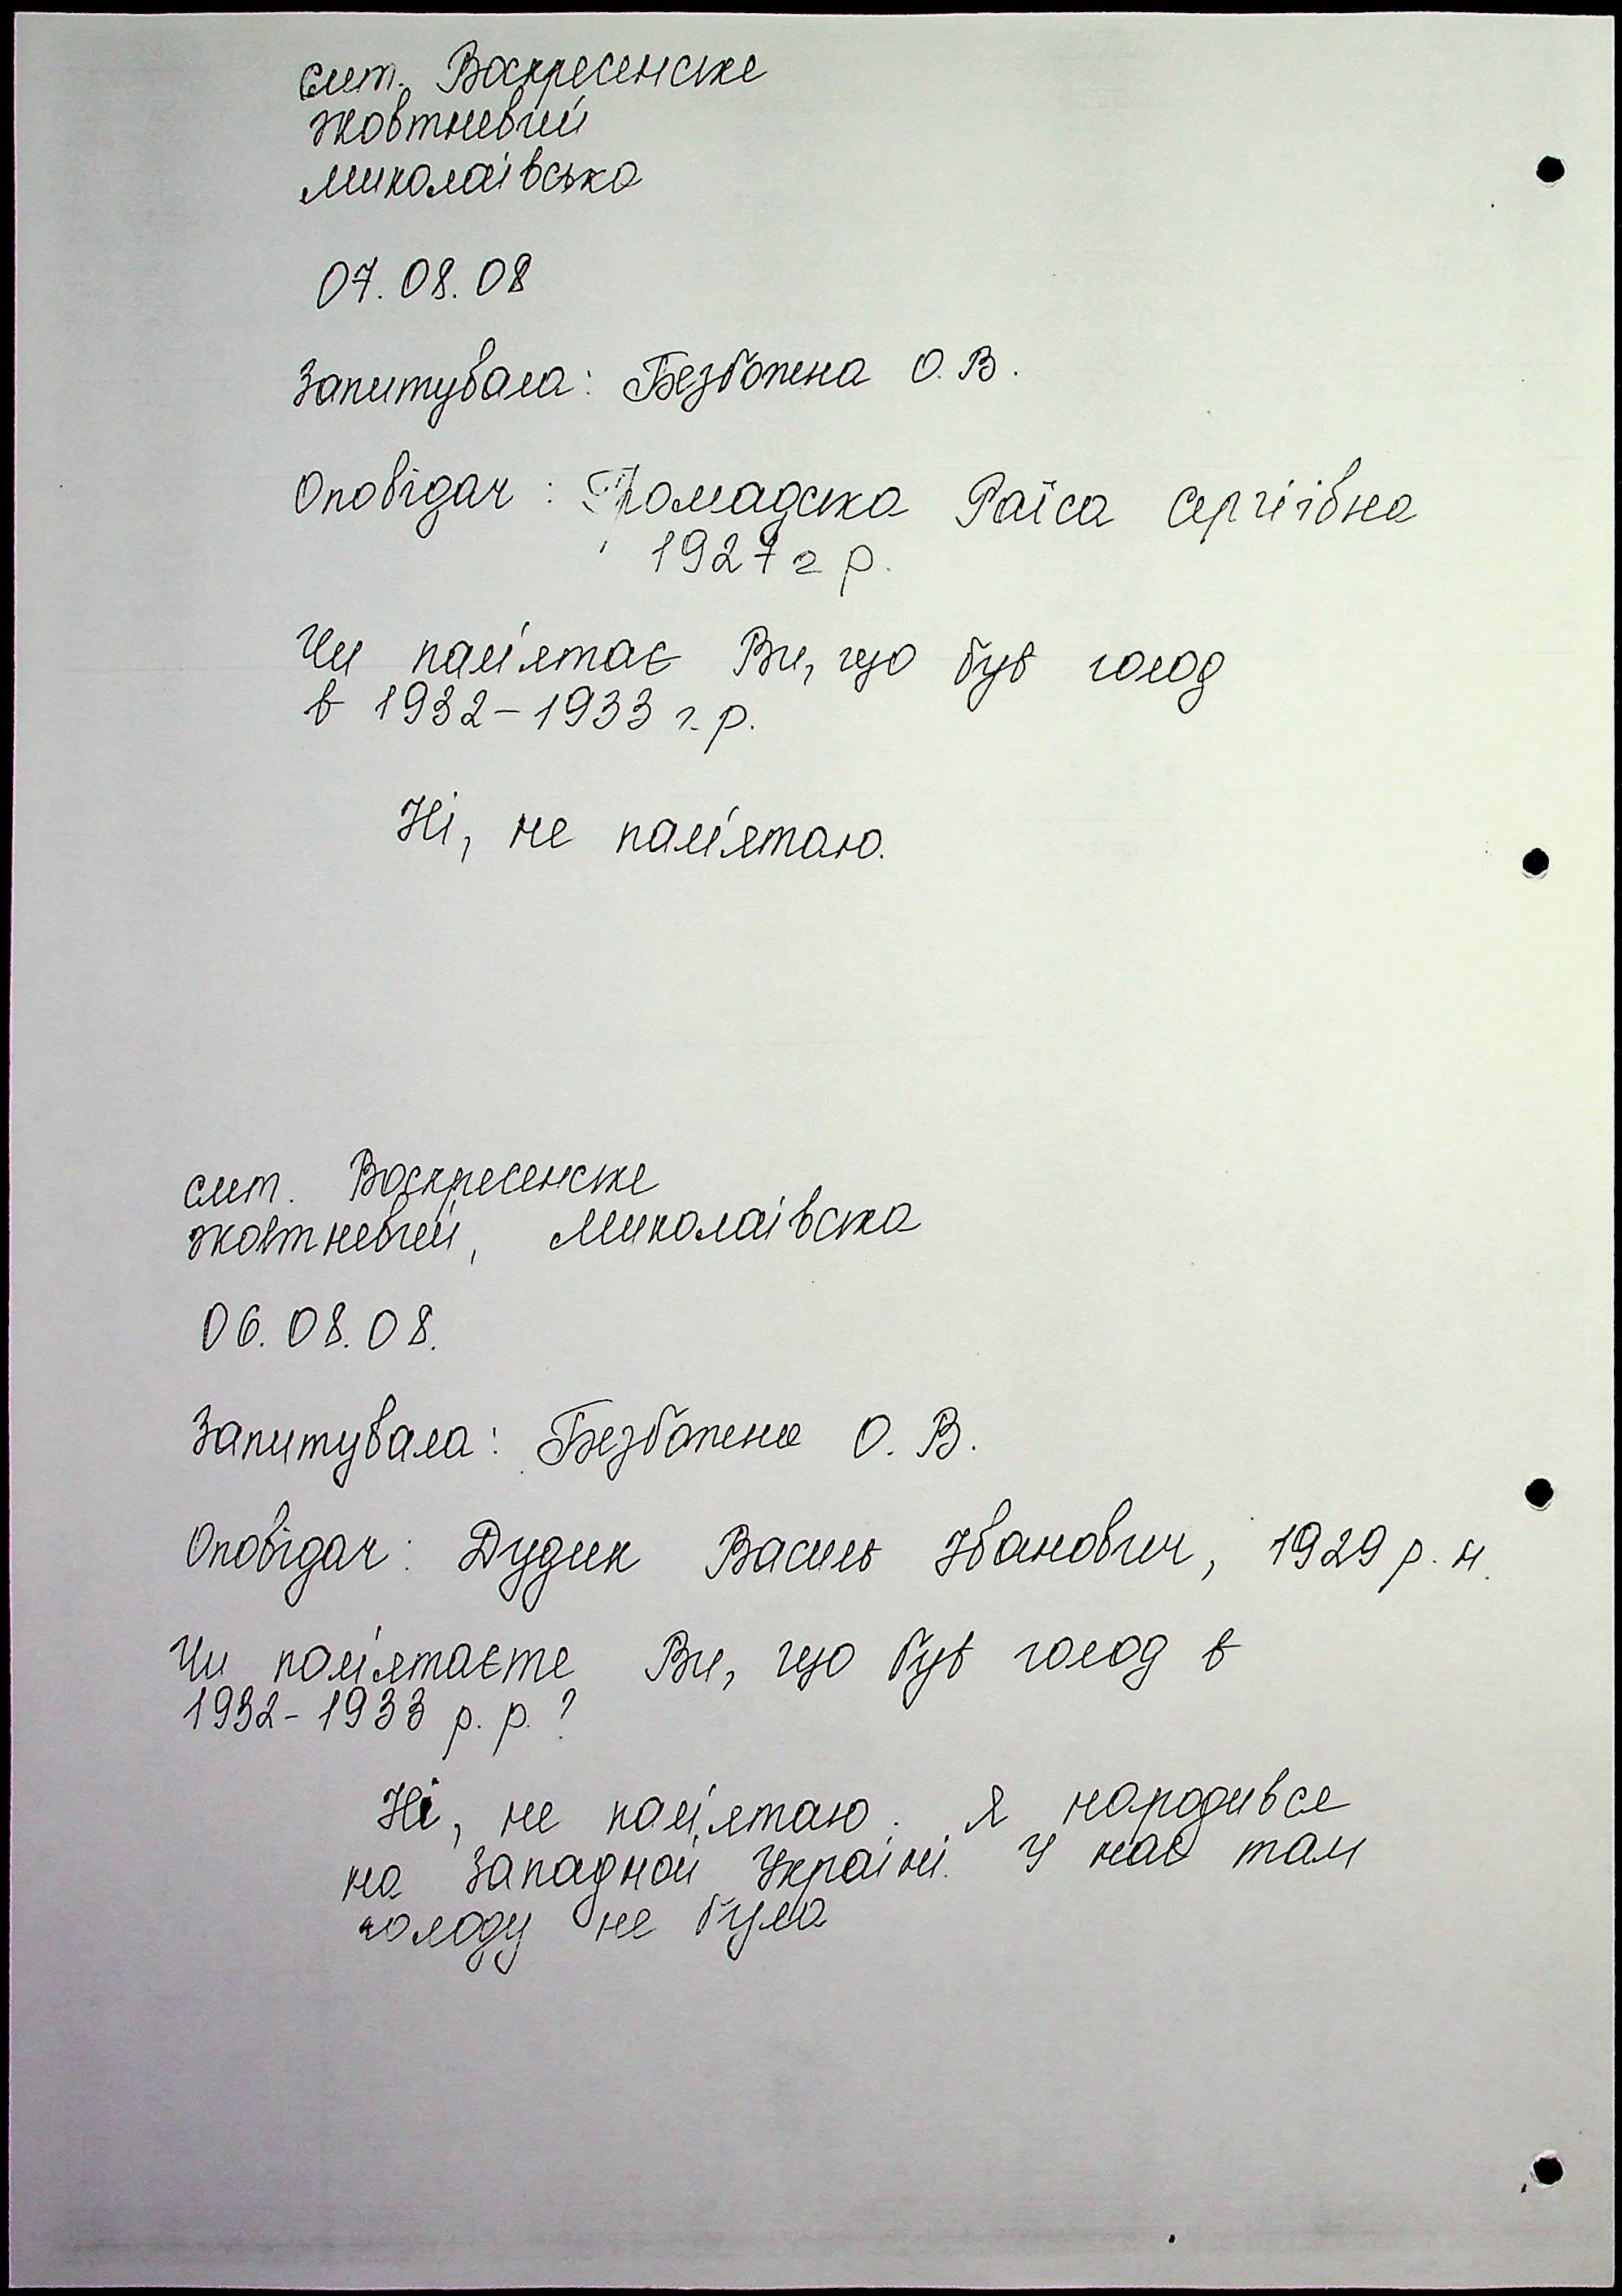 смт. Воскресенське
жовтневий
миколаївська
07.08.08
Запитувала: Безбожена О.В.
Оповідач: Громадска Раїса Сергіївна
1927 г р.
Чи пам'ятає Ви, що був голод
в 1932-1933 г.р.
Ні, не пам'ятаю.
смт. Воскресенске
жовтневий, Миколаівска
06.08.08.
Запитувала: Безбожена О. В.
Оповідач: Дудик Василь Іванович, 1929 р. н.
Чи пам'ятаєте Ви, що був голод в
1932-1933 р. р.?
Ні, не пам'ятаю. Я народився
на Западной Україні. У нас там
голоду не було